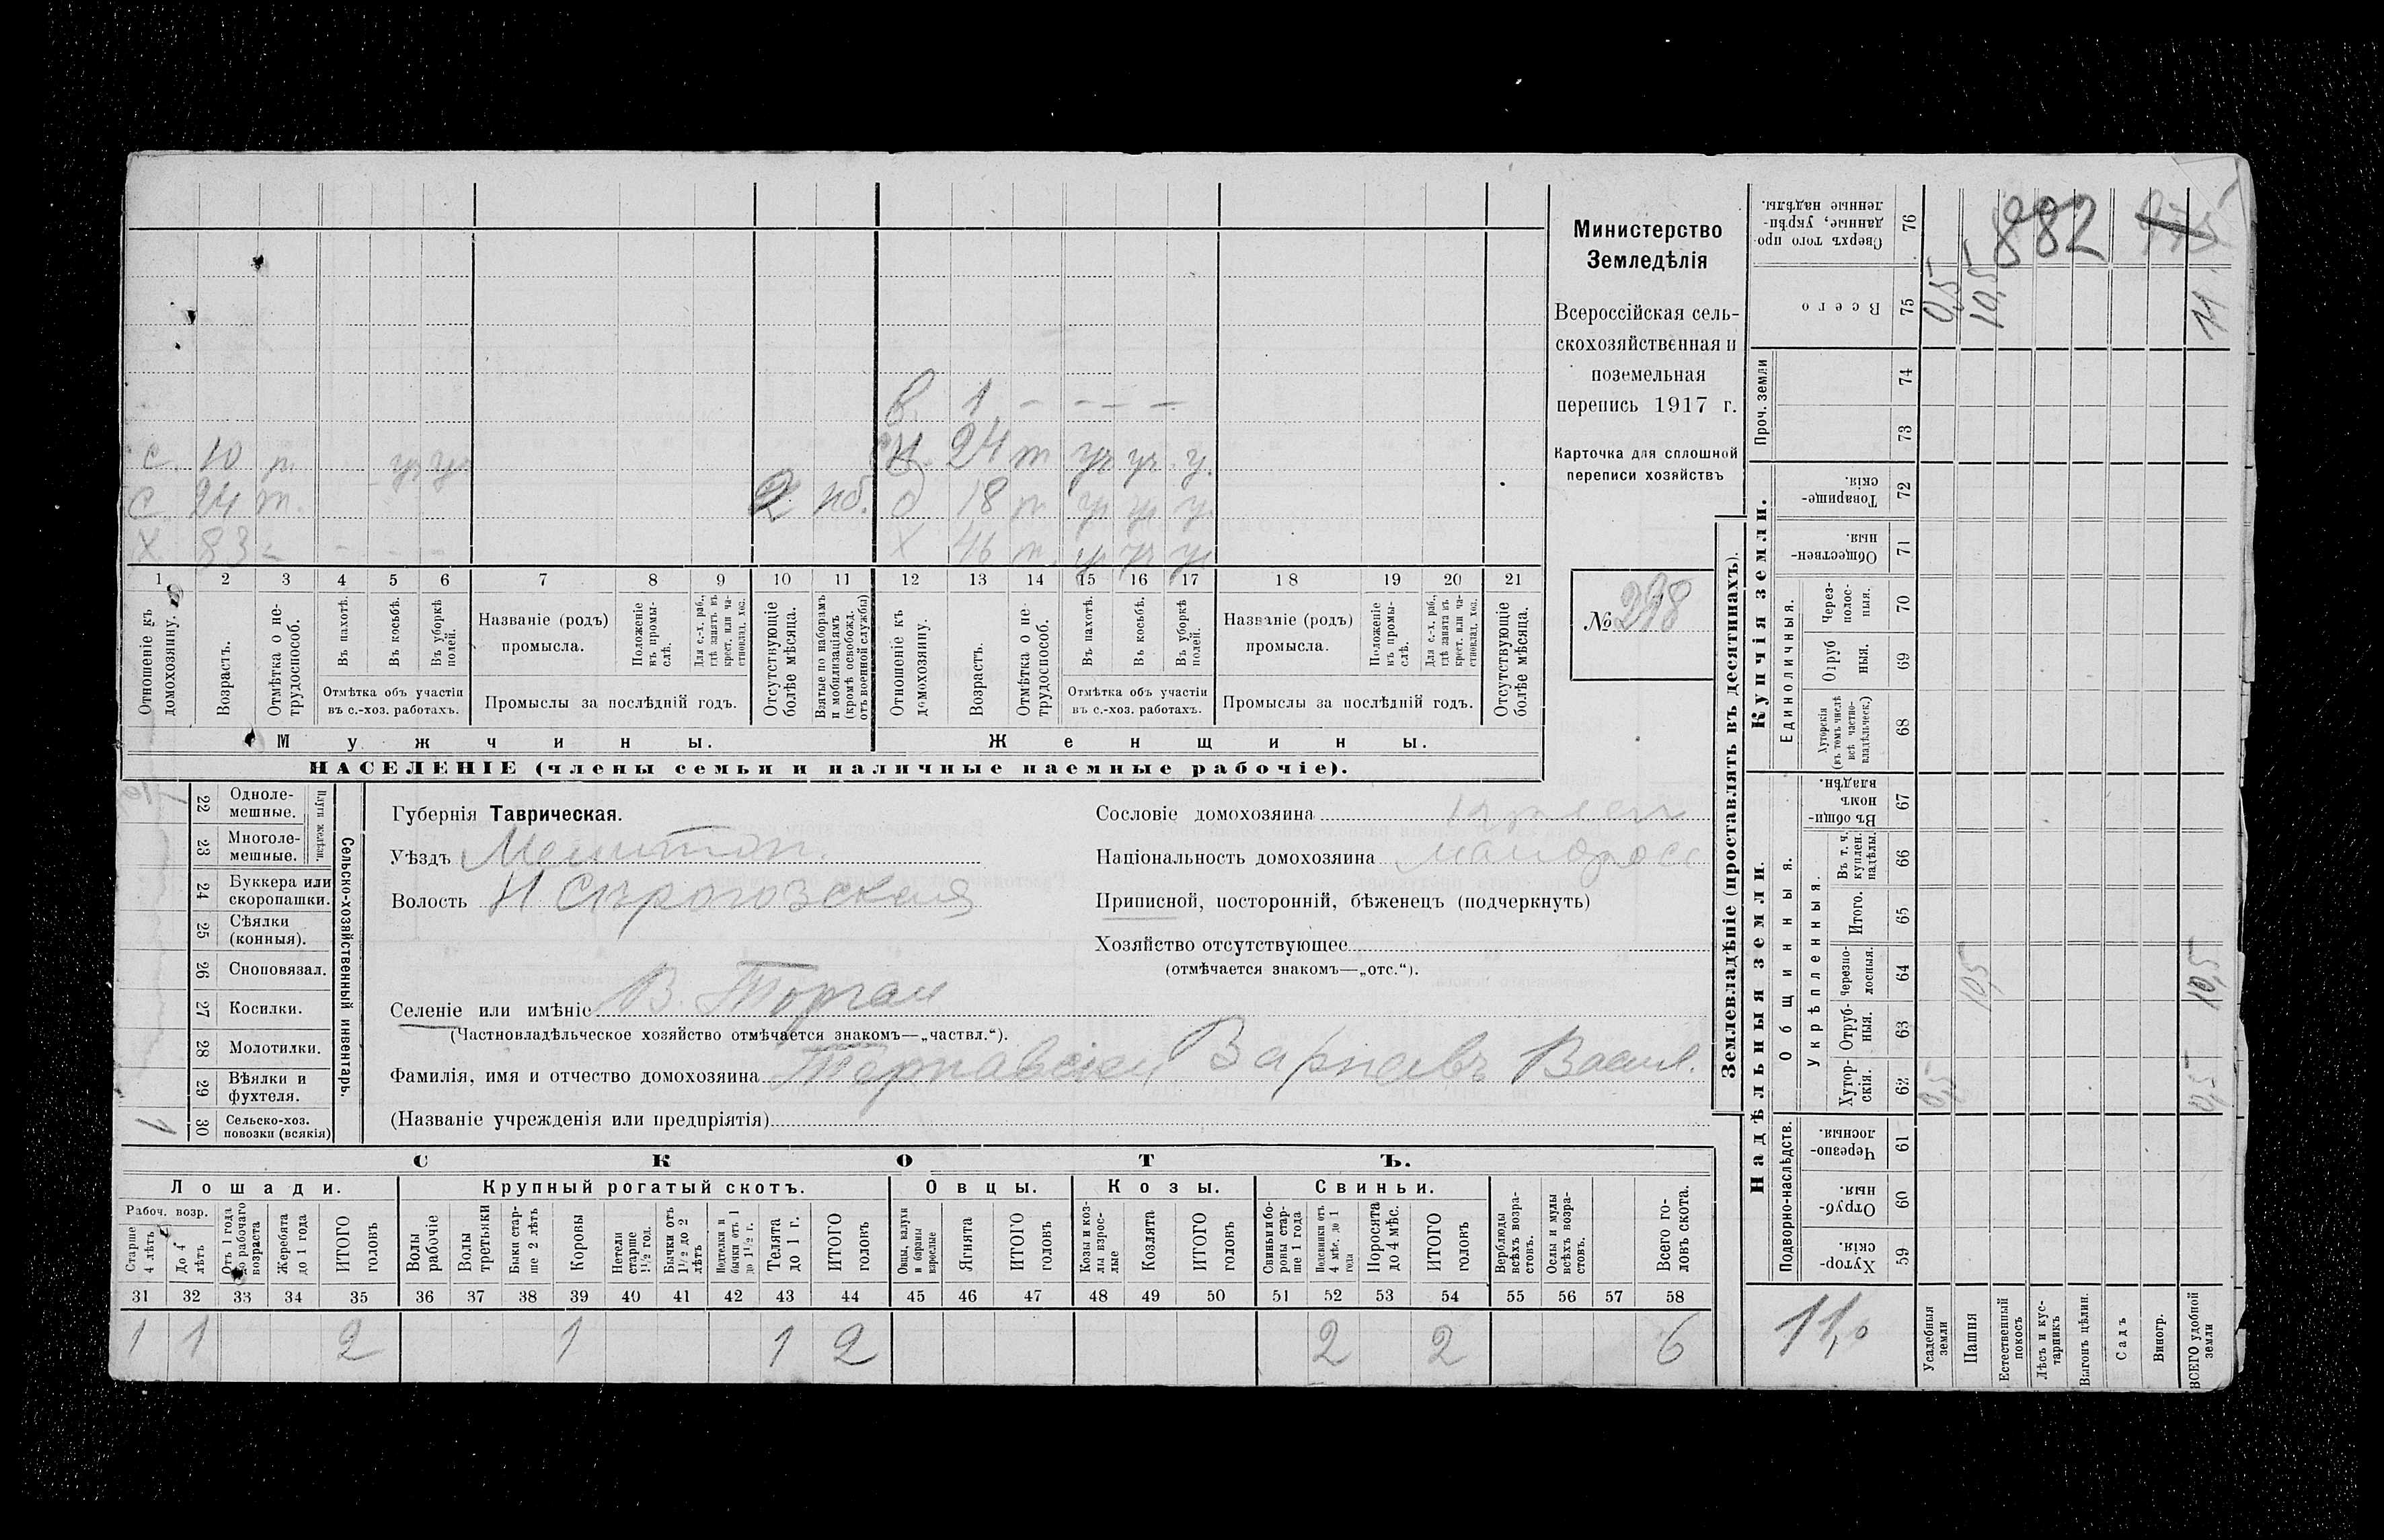 882
Министерство
Земледѣлія
Всероссійская сель-
скохозяйственная и
поземельная
перепись 1917 г.
Карточка для сплошной
переписи хозяйствъ
№ 298
в. 1 - - - -
с. 10 п. уч уч сн. 24 т уч уч. у.
с 24 т. 2 пб. д 18 п уч уч уч
х 83 - - - - х 46 т. уч уч уч
1 2 3 4 5 6 7 8 9 10 11 12 13 14 15 16 17 18 19 20 21
Отношеніе къ домохозяину.
Возрастъ.
Отмѣтка о не-трудоспособ.
Въ пахотѣ.
Въ косьбѣ.
Въ уборкѣ полей.
Отмѣтка объ участіи
въ с.-хоз. работахъ.
Названіе (родъ)
промысла.
Положеніе въ промы-слѣ.
Для с.-х. раб., гдѣ занятъ въ крест. или ча-стновлад. хоз.
Промыслы за послѣдній годъ.
Отсутствующіе болѣе мѣсяца.
Взятые по наборамъ и мобилизаціямъ (кромѣ освобожд. отъ военной службы)
Отношеніе къ домохозяину.
Возрастъ.
Отмѣтка о не-трудоспособ.
Въ пахотѣ.
Въ косьбѣ.
Въ уборкѣ полей.
Отмѣтка объ участіи
въ с.-хоз. работахъ.
Названіе (родъ)
промысла.
Положеніе въ промы-слѣ.
Для с.-х. раб., гдѣ занята въ крест. или ча-стновлад. хоз.
Промыслы за послѣдній годъ.
Отсутствующіе болѣе мѣсяца.
Мужчины. Женщины.
НАСЕЛЕНІЕ (члены семьи и наличные наемные рабочіе).
Сельско-хозяйственный инвентарь.
Плуги желѣзн.
22 Одноле-мешные.
23 Многоле-мешные.
24 Буккера или скоропашки.
25 Сѣялки (конныя).
26 Сноповязал.
27 Косилки.
28 Молотилки.
29 Вѣялки и фухтеля.
1 30 Сельско-хоз. повозки (всякія)
Губернія Таврическая.
Уѣздъ Мелитоп.
Волость Н Сѣрогозская
Селеніе или имѣніе В. Торгаи
(Частновладѣльческое хозяйство отмѣчается знакомъ—„частвл.“).
Фамилія, имя и отчество домохозяина Тернавскій Варнавъ Васил.
(Названіе учрежденія или предпріятія)
Сословіе домохозяина
Національность домохозяина малоросс
Приписной, посторонній, бѣженецъ (подчеркнуть)
Хозяйство отсутствующее
(отмѣчается знакомъ—„отс.“).
СКОТЪ.
Лошади. Крупный рогатый скотъ. Овцы. Козы. Свиньи.
Рабоч. возр.
Старше 4 лѣтъ
До 4 лѣтъ
Отъ 1 года до рабочаго возраста
Жеребята до 1 года
ИТОГО головъ
Волы рабочіе
Волы третьяки
Быки стар-ше 2 лѣтъ
Коровы
Нетели старше 1½ год.
Бычки отъ 1½ до 2 лѣтъ
Подтелки и бычки отъ 1 до 1½ г.
Телята до 1 г.
ИТОГО головъ
Овцы, валухи и бараны взрослые
Ягнята
ИТОГО головъ
Козы и коз-лы взрос-лые
Козлята
ИТОГО головъ
Свиньи и бо-ровы стар-ше 1 года
Подсвинки отъ 4 мѣс. до 1 года
Поросята до 4 мѣс.
ИТОГО головъ
Верблюды всѣхъ возра-стовъ.
Ослы и мулы всѣхъ возра-стовъ.
Всего го-ловъ скота.
31 32 33 34 35 36 37 38 39 40 41 42 43 44 45 46 47 48 49 50 51 52 53 54 55 56 57 58
1 1 2 1 1 2 2 2 6
Землевладѣніе (проставлять въ десятинахъ).
Купчія земли.
Надѣльныя земли.
Сверхъ того про-данные, укрѣп-ленные надѣлы. 76
Всего 75 0,5 10,5 11
Проч. земли 74
73
Товарище-скія. 72
Обществен-ныя. 71
Единоличныя.
Через-полос-ныя. 70
Отруб ныя. 69
Хуторскія (въ томъ числѣ всѣ частно-владѣльческ.) 68
Общинныя.
Въ общин-номъ владѣн. 67
Укрѣпленныя.
Въ т. ч. куплен. надѣлы. 66
Итого. 65
Черезпо-лосныя. 64 10,5 10,5
Отруб-ныя. 63
Хутор-скія. 62 0,5 0,5
Подворно-наслѣдств.
Черезпо-лосныя. 61
Отруб-ныя. 60
Хутор-скія. 59
11,0
Усадебныя земли
Пашня
Естественный покосъ
Лѣсъ и кус-тарникъ
Выгонъ цѣлин.
Садъ
Виногр.
ВСЕГО удобной земли